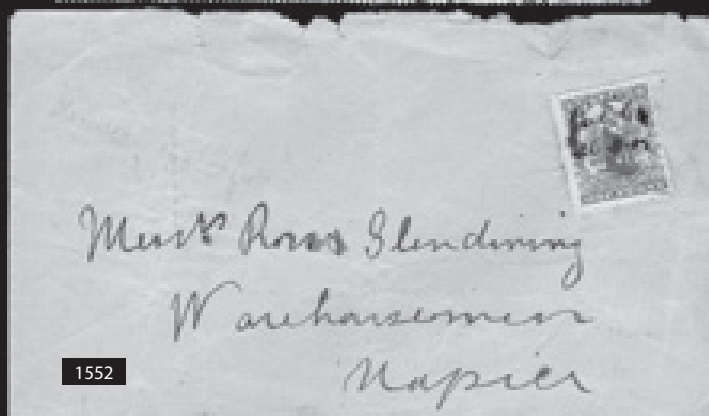 Messrs Ross Glendining
Warehousemen
Napier
1552